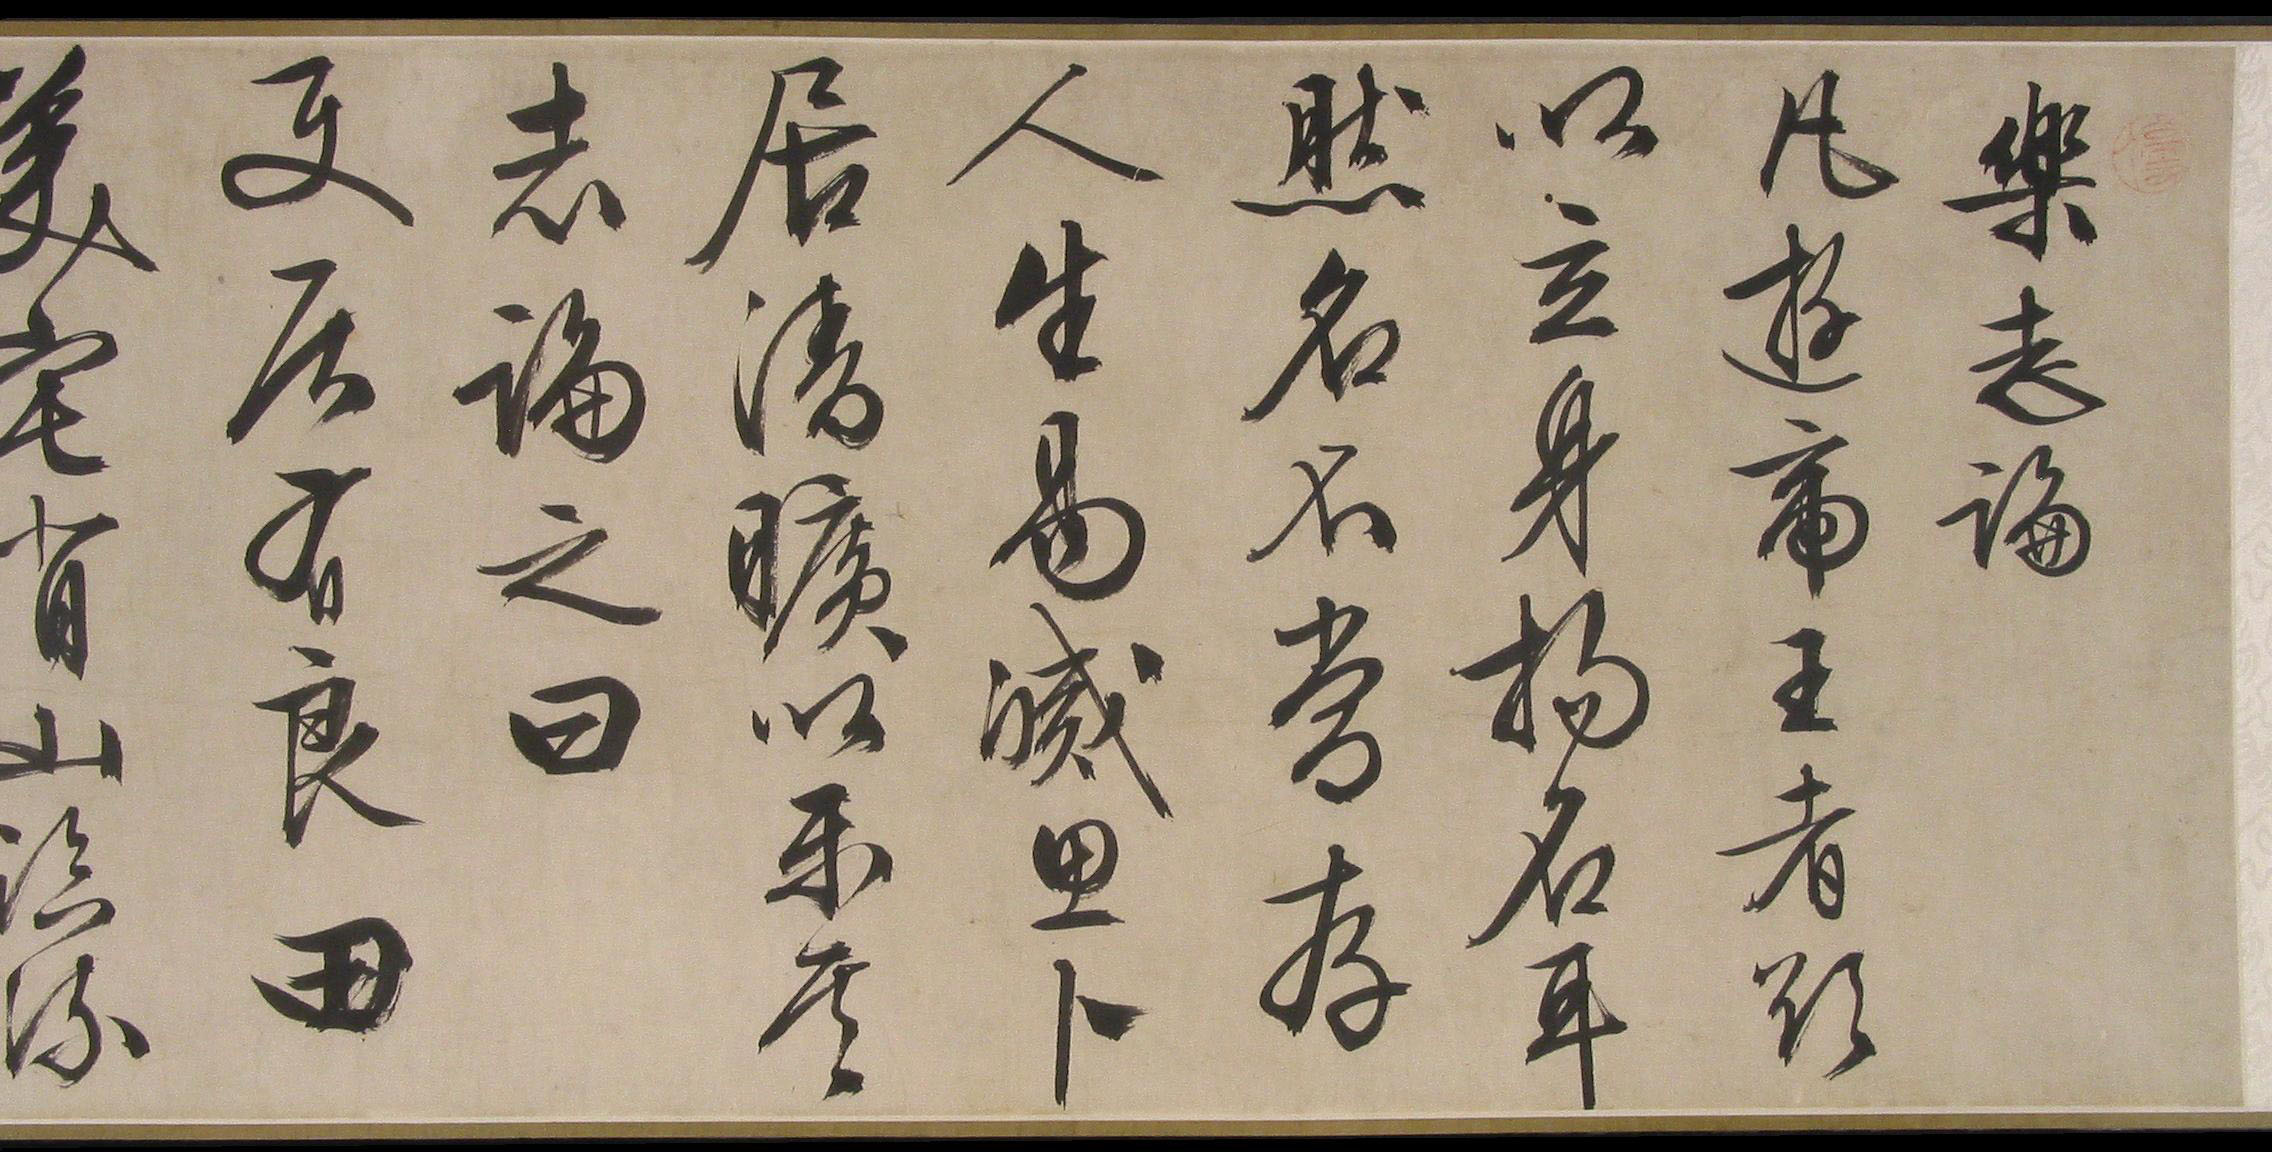 樂志論
凡遊帝王者欲
以立身揚名耳
然名不常存
人生易滅思卜
居清曠以樂其
志論之曰
使居有良田
美宅背山臨流